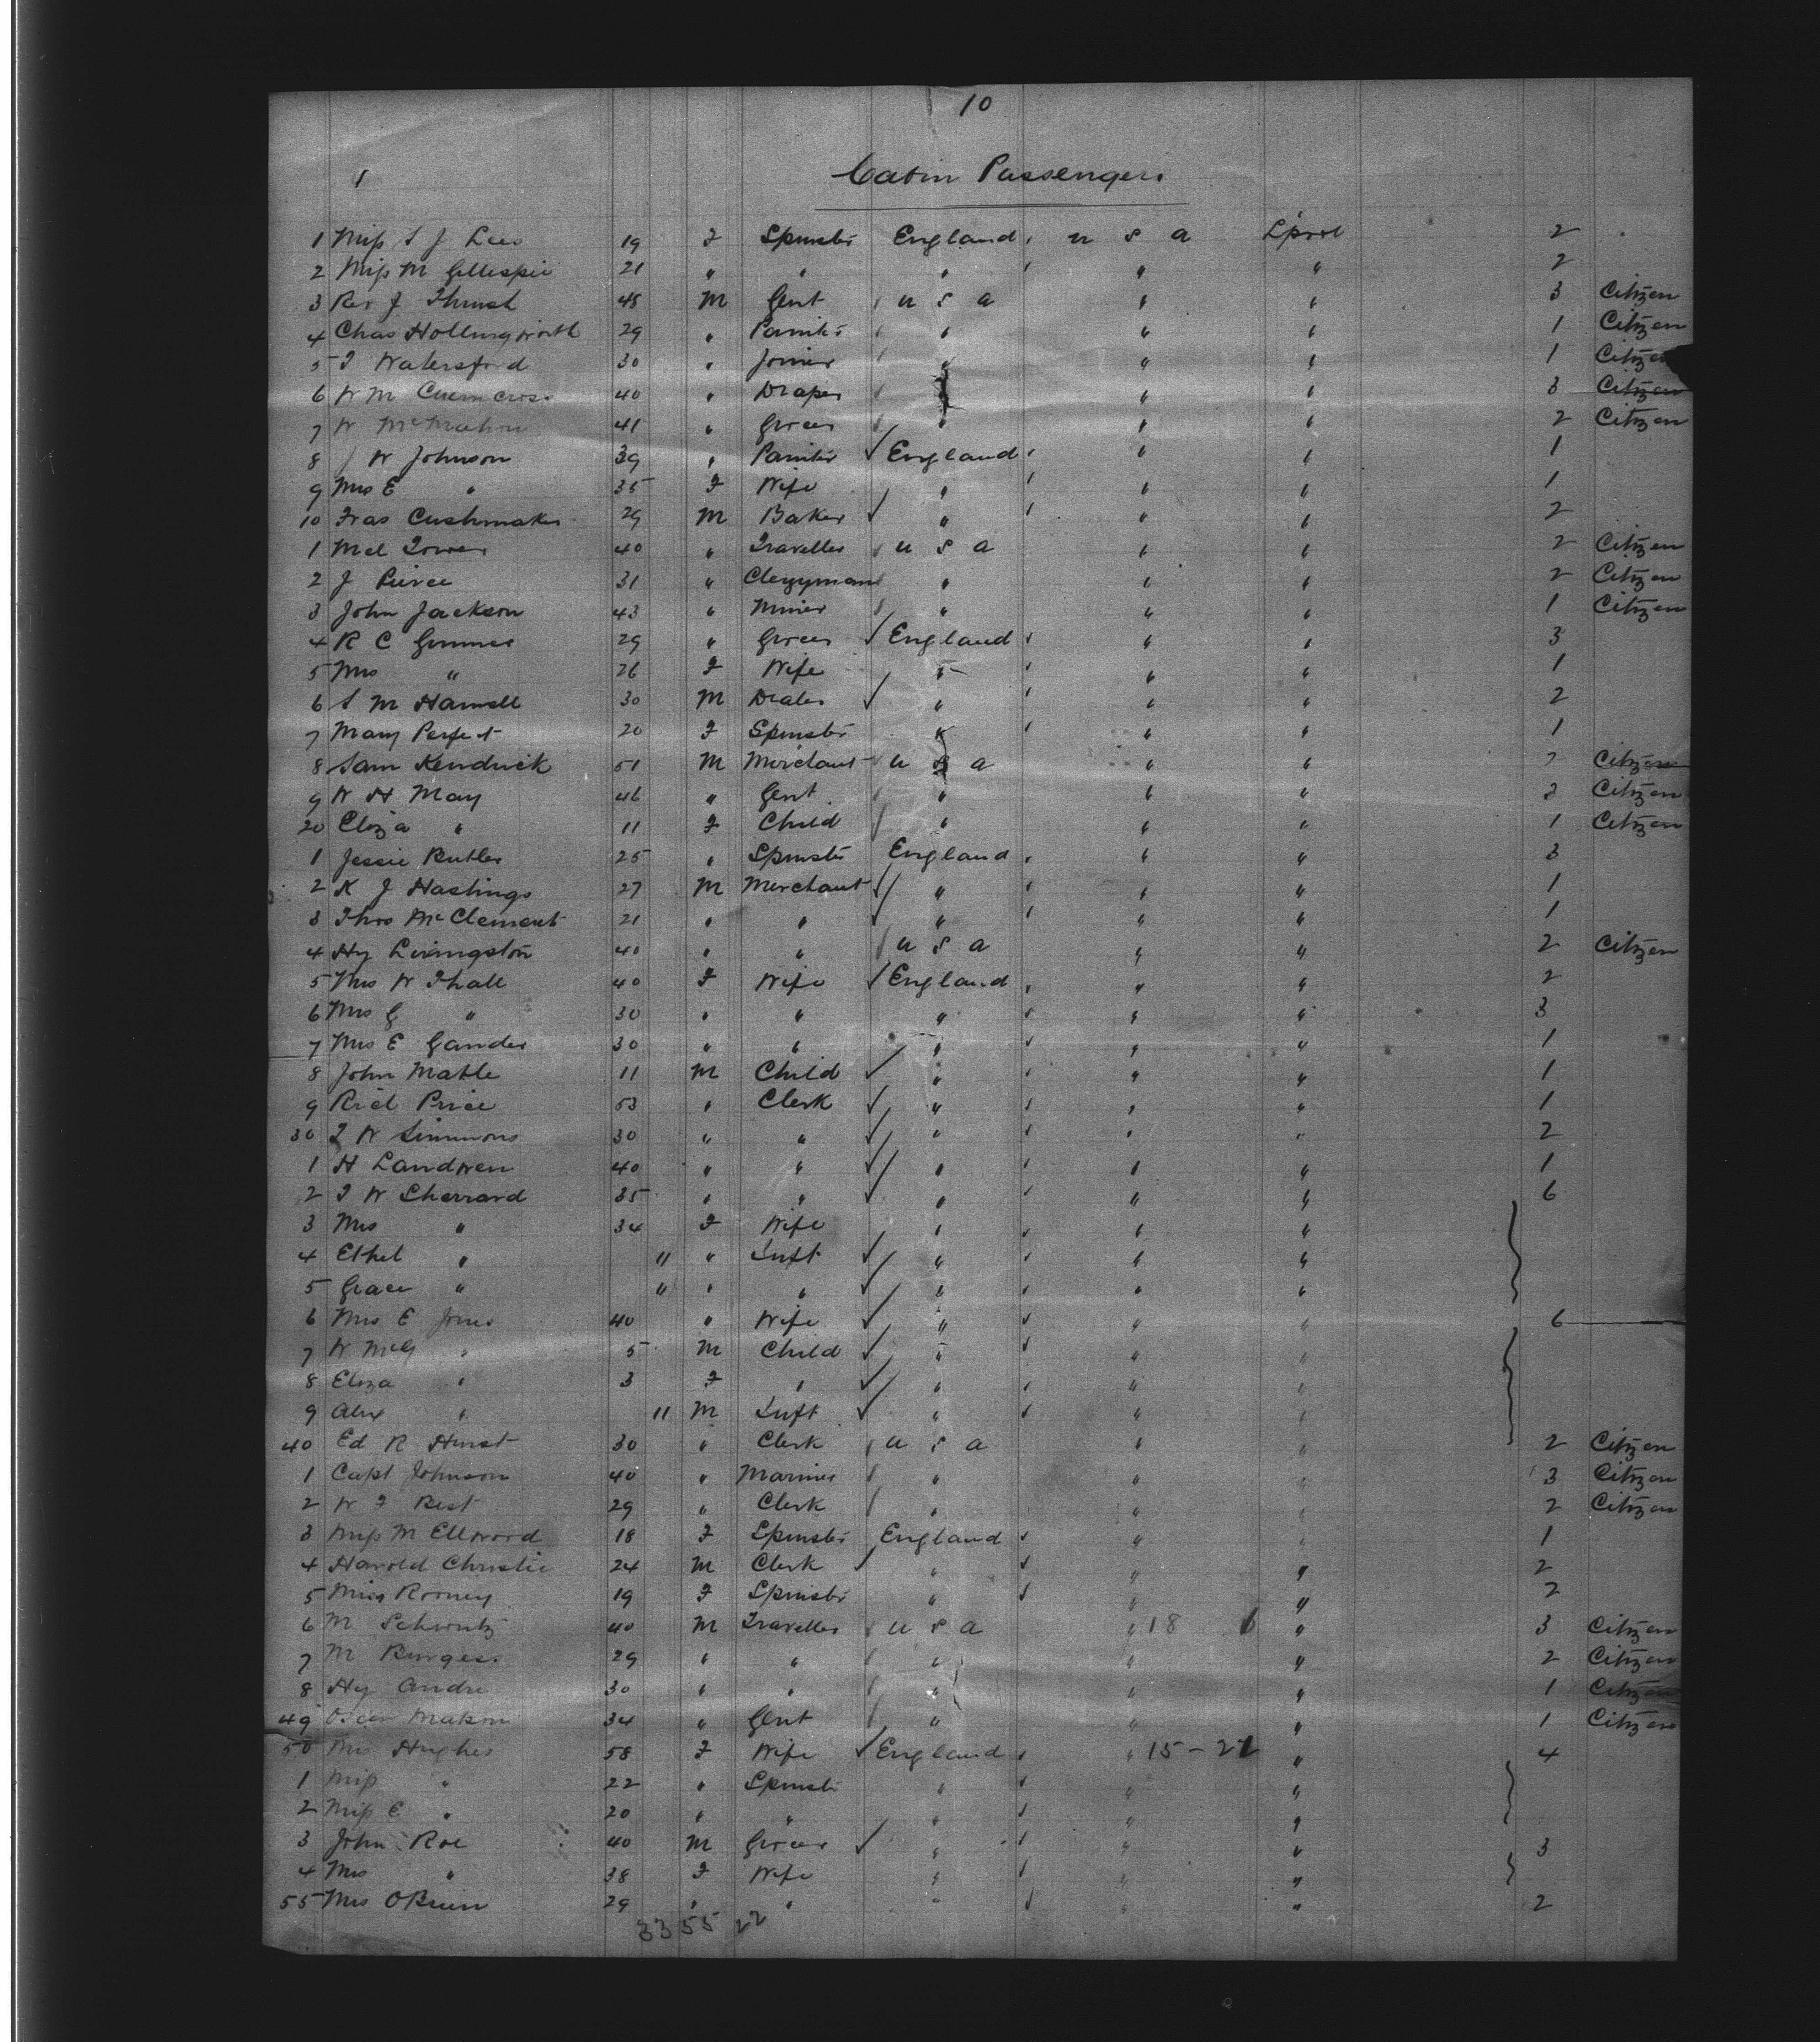 10
1
Cabin Passengers
1 Miss S J Lees 19 F Spinster England u s a L'pool 2
2 Miss M Gillespie 21 " " " " " 2
3 Rev J Thrush 48 M Gent u s a " " 3 Citizen
4 Chas Hollingworth 29 " Painter " " " 1 Citizen
5 T Watersford 30 " Joiner " " " 1 Citizen
6 W M Cuerncross 40 " Draper " " " 3 Citizen
7 W McMahon 41 " Grocer " " " 2 Citizen
8 J W Johnson 39 " Painter England " " 1
9 Mrs E " 35 F Wife " " " 1
10 Fras Cushmaker 29 M Baker " " " 2
1 Mcl Tower 40 " Traveller u s a " " 2 Citizen
2 J Peirce 31 " Clergyman " " " 2 Citizen
3 John Jackson 43 " Miner " " " 1 Citizen
4 R C Gommer 29 " Grocer England " " 3
5 Mrs " 26 F Wife " " " 1
6 S M Hamell 30 M Dealer " " " 2
7 Mary Perfect 20 F Spinster " " " 1
8 Sam Kendrick 51 M Merchant u s a " " 2 Citizen
9 W H May 46 " Gent " " " 2 Citizen
20 Eliza " 11 F Child " " " 1 Citizen
1 Jessie Butler 25 " Spinster England " " 3
2 K J Hastings 27 M Merchant " " " 1
3 Thos McClement 21 " " " " " 1
4 Hy Livingston 40 " " u s a " " 2 Citizen
5 Mrs W Thall 40 F Wife England " " 2
6 Mrs G " 30 " " " " " 3
7 Mrs E Gander 30 " " " " " 1
8 John Mable 11 M Child " " " 1
9 Ricd Price 53 " Clerk " " " 1
30 T W Simmons 30 " " " " " 2
1 H Landwen 40 " " " " " 1
2 T W Sherrard 35 " " " " " 6
3 Mrs " 34 F Wife " " "
4 Ethel " 11 " Inft " " "
5 Grace " 11 " " " " "
6 Mrs E Jones 40 " Wife " " " 6
7 W McG " 5 M Child " " "
8 Eliza " 3 F " " " "
9 Alex " 11 M Inft " " "
40 Ed R Hurst 30 " Clerk u s a " " 2 Citizen
1 Capt Johnson 40 " Mariner " " " 3 Citizen
2 W F Best 29 " Clerk " " " 2 Citizen
3 Miss M Ellwood 18 F Spinster England " " 1
4 Harold Christie 24 M Clerk " " " 2
5 Miss Rooney 19 F Spinster " " " 2
6 M Schwritz 40 M Traveller u s a " 18 6 " 3 Citizen
7 M Burgess 29 " " " " " 2 Citizen
8 Hy Andre 30 " " " " " 1 Citizen
49 Oscar Makon 34 " Gent " " " 1 Citizen
50 Mrs Hughes 58 F Wife England " 15-22 " 4
1 Miss " 22 " Spinster " " "
2 Miss E " 20 " " " " "
3 John Roe 40 M Grocer " " " 3
4 Mrs " 38 F Wife " " "
55 Mrs OBrien 29 " " " " " 2
33 55 22